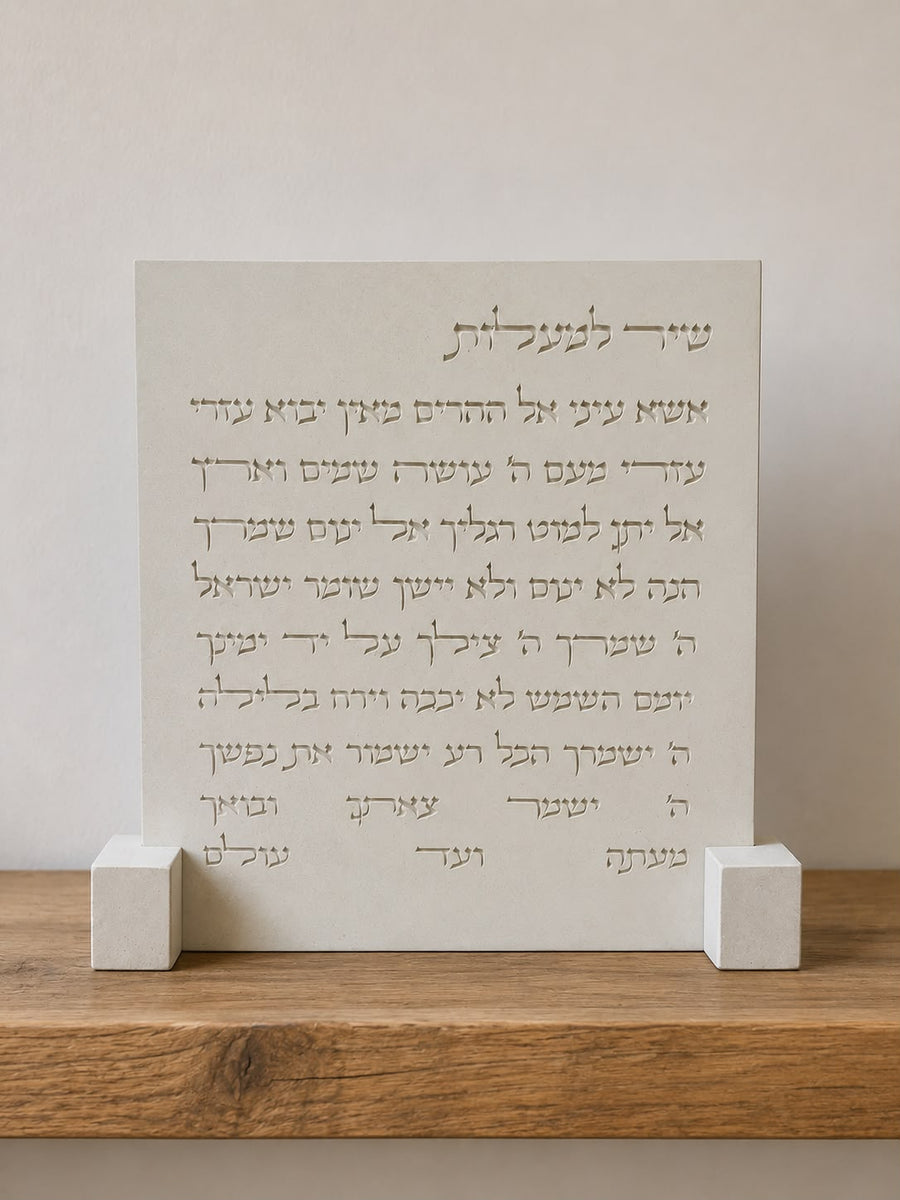 שיר למעלות
אשא עיני אל ההרים מאין יבוא עזרי
עזרי מעם ה' עושה שמים וארץ
אל יתן למוט רגליך אל ינום שמרך
הנה לא ינום ולא יישן שומר ישראל
ה' שמרך ה' צילך על יד ימינך
יומם השמש לא יככה וירח בלילה
ה' ישמרך הכל רע ישמור את נפשך
ה' ישמר צאתך ובואך
מעתה ועד עולם